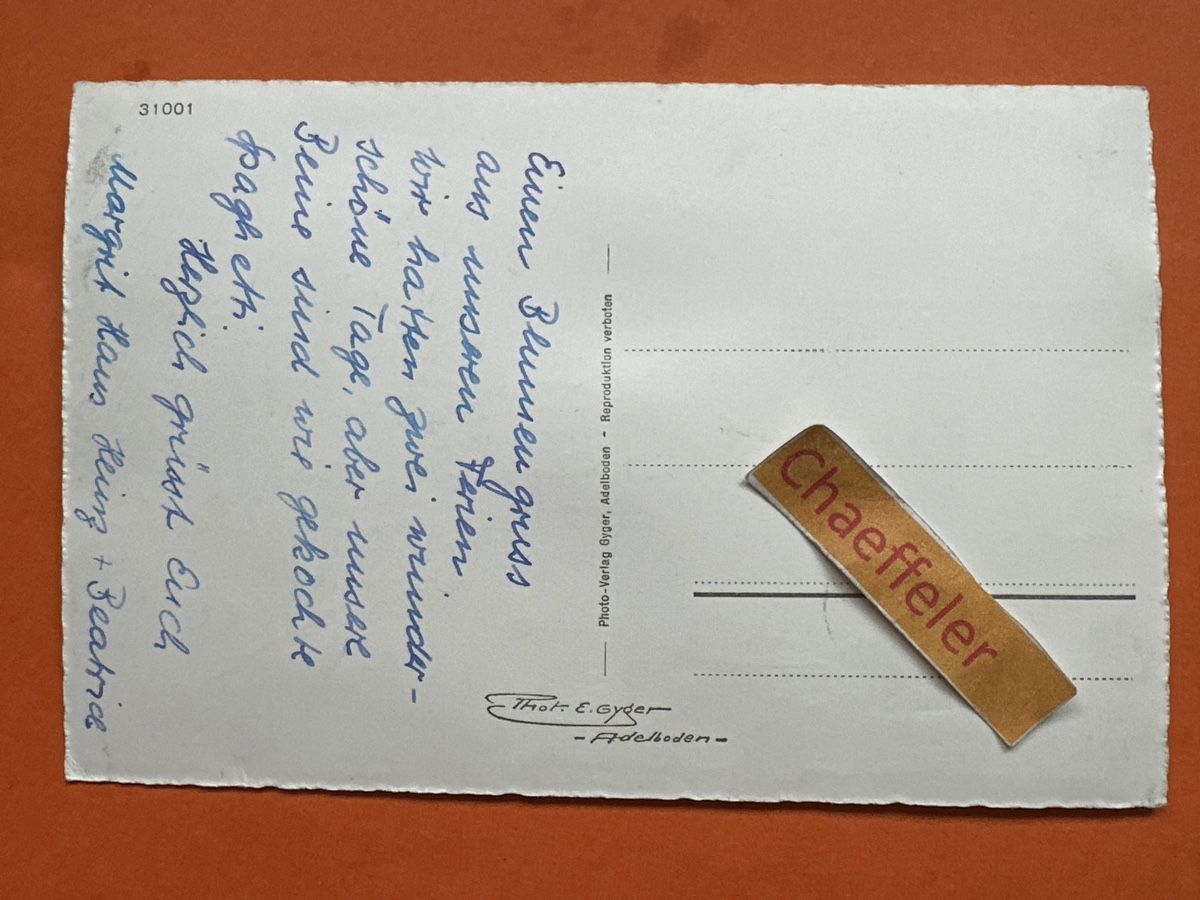 31001
Einen Blumengruss
aus unseren Ferien
Wir hatten zwei wunder-
schöne Tage, aber unsere
Beine sind wie gekochte
Spaghetti.
Herzlich grüsst Euch
Margrit Hans Heinz + Beatrice
Photo-Verlag Gyger, Adelboden - Reproduktion verboten
Phot. E. Gyger
- Adelboden -
Chaeffeler